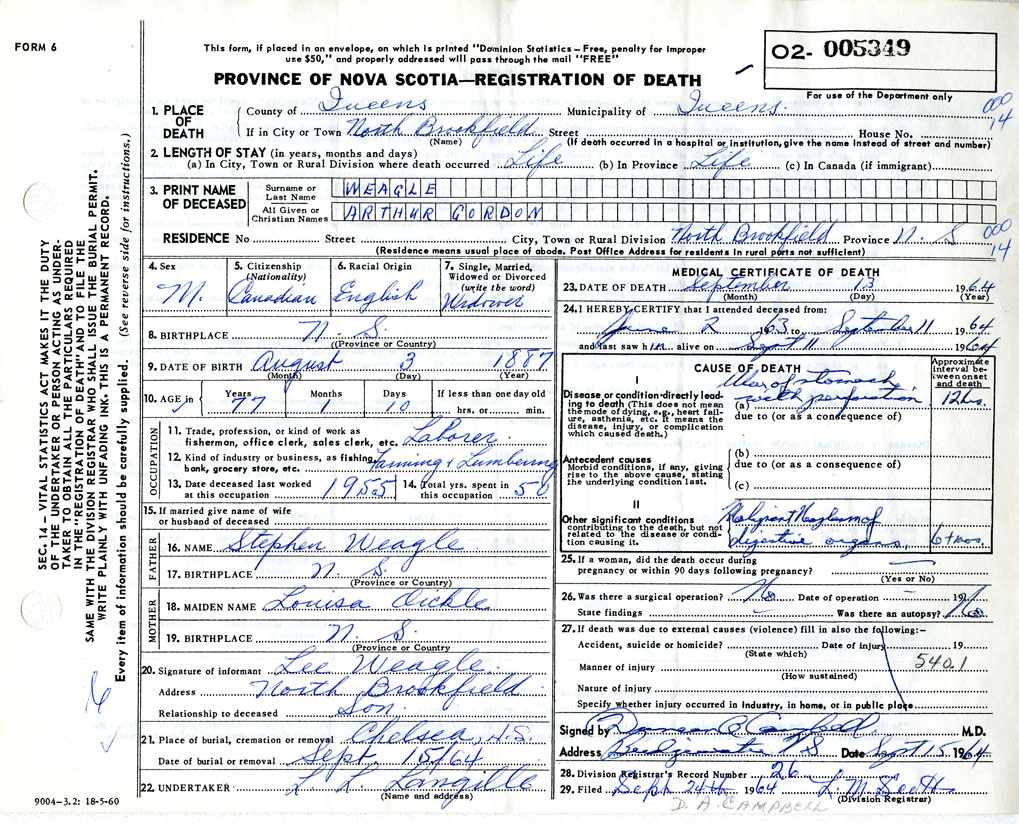 FORM 6
This form, if placed in an envelope, on which is printed "Dominion Statistics—Free, penalty for improper
use $50," and properly addressed will pass through the mail "FREE"
PROVINCE OF NOVA SCOTIA—REGISTRATION OF DEATH
02- 005349
For use of the Department only
000
14
SEC. 14—VITAL STATISTICS ACT MAKES IT THE DUTY
OF THE UNDERTAKER OR PERSON ACTING AS UNDER-
TAKER TO OBTAIN ALL THE PARTICULARS REQUIRED
IN THE "REGISTRATION OF DEATH" AND TO FILE THE
SAME WITH THE DIVISION REGISTRAR WHO SHALL ISSUE THE BURIAL PERMIT.
WRITE PLAINLY WITH UNFADING INK. THIS IS A PERMANENT RECORD.
Every item of information should be carefully supplied. (See reverse side for instructions.)
1. PLACE OF DEATH County of Queens Municipality of Queens.
If in City or Town North Brookfield Street House No.
(Name) (If death occurred in a hospital or institution, give the name instead of street and number)
2. LENGTH OF STAY (in years, months and days)
(a) In City, Town or Rural Division where death occurred Life (b) In Province Life (c) In Canada (if immigrant)
3. PRINT NAME OF DECEASED Surname or Last Name WEAGLE
All Given or Christian Names ARTHUR GORDON
RESIDENCE No Street City, Town or Rural Division North Brookfield Province N. S
(Residence means usual place of abode. Post Office Address for residents in rural parts not sufficient)
000
14
4. Sex M.
5. Citizenship (Nationality) Canadian
6. Racial Origin English
7. Single, Married, Widowed or Divorced (write the word) Widower
8. BIRTHPLACE N. S.
(Province or Country)
9. DATE OF BIRTH August 3 1887
(Month) (Day) (Year)
10. AGE in Years 77 Months 1 Days 10 If less than one day old hrs. or min.
OCCUPATION
11. Trade, profession, or kind of work as fisherman, office clerk, sales clerk, etc. Laborer.
12. Kind of industry or business, as fishing, bank, grocery store, etc. Farming & Lumbering
13. Date deceased last worked at this occupation 1955 14. Total yrs. spent in this occupation 50
15. If married give name of wife or husband of deceased
FATHER
16. NAME Stephen Weagle
17. BIRTHPLACE N. S.
(Province or Country)
MOTHER
18. MAIDEN NAME Louisa Oickle
19. BIRTHPLACE N. S.
(Province or Country)
20. Signature of informant Lee Weagle.
Address North Brookfield
Relationship to deceased Son.
21. Place of burial, cremation or removal Chelsea, N.S.
Date of burial or removal Sept. 15/64
22. UNDERTAKER L. L. Langille
(Name and address)
9004-3.2: 18-5-60
MEDICAL CERTIFICATE OF DEATH
23. DATE OF DEATH September 13 1964
(Month) (Day) (Year)
24. I HEREBY CERTIFY that I attended deceased from:
June 2 1963 to September 11 1964
and last saw him alive on Sept 11 1964
CAUSE OF DEATH
Approximate interval between onset and death
I
Disease or condition directly leading to death (This does not mean the mode of dying, e.g., heart failure, asthenia, etc. It means the disease, injury, or complication which caused death.)
(a) Ulcer of stomach with perforation 12 hrs.
due to (or as a consequence of)
Antecedent causes
Morbid conditions, if any, giving rise to the above cause, stating the underlying condition last.
(b)
due to (or as a consequence of)
(c)
II
Other significant conditions contributing to the death, but not related to the disease or condition causing it.
Malignant Neoplasm of digestive organs. 6+mos.
25. If a woman, did the death occur during pregnancy or within 90 days following pregnancy? —
(Yes or No)
26. Was there a surgical operation? No Date of operation — 19
State findings — Was there an autopsy? No
27. If death was due to external causes (violence) fill in also the following:—
Accident, suicide or homicide? Date of injury 19
(State which)
540.1
Manner of injury
(How sustained)
Nature of injury
Specify whether injury occurred in industry, in home, or in public place
Signed by Duncan A Campbell M.D.
Address Bridgewater NS Date Sept 15 1964
28. Division Registrar's Record Number 26
29. Filed Sept 24th 1964 L. M. Scott
(Division Registrar)
D. A. CAMPBELL